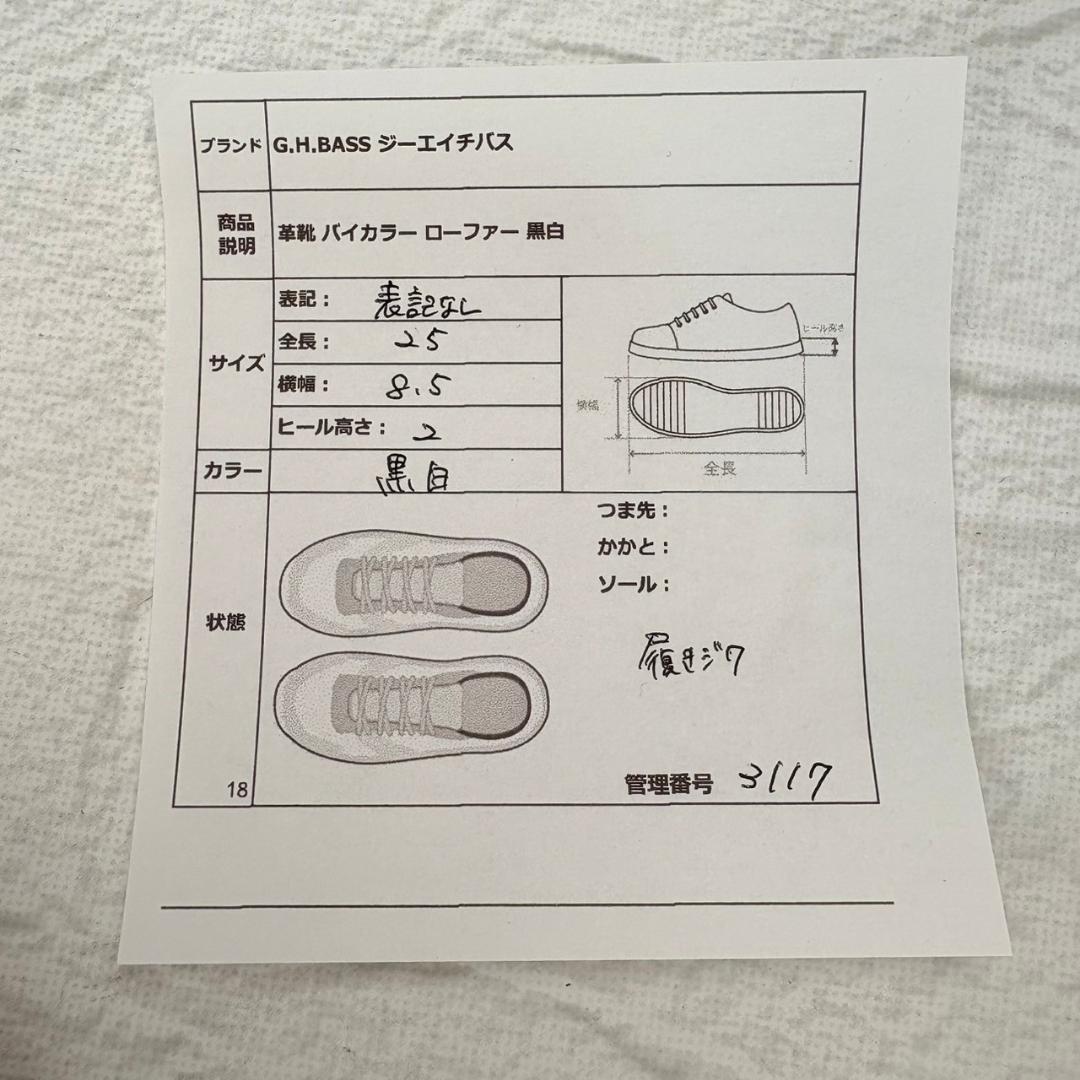 ブランド G.H.BASS ジーエイチバス
商品
説明
革靴 バイカラー ローファー 黒白
サイズ
表記： 表記なし
全長： 25
横幅： 8.5
ヒール高さ： 2
ヒール高さ
横幅
全長
カラー 黒白
状態
つま先：
かかと：
ソール：
履きジワ
18
管理番号 3117